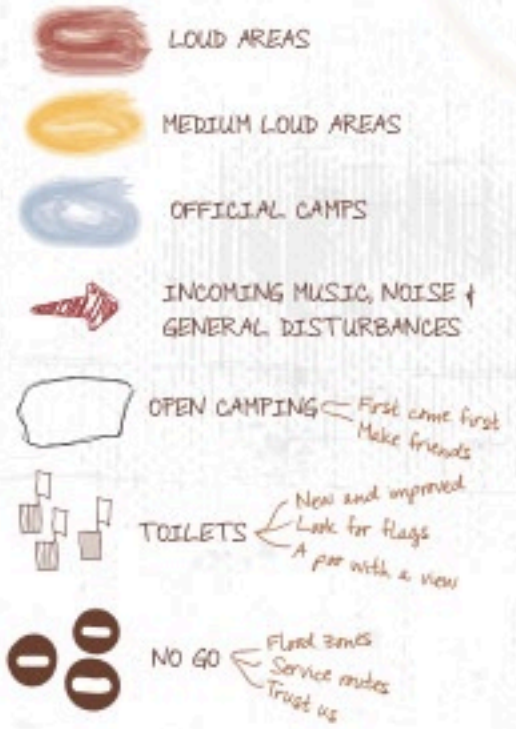 LOUD AREAS
MEDIUM LOUD AREAS
OFFICIAL CAMPS
INCOMING MUSIC, NOISE &
GENERAL DISTURBANCES
OPEN CAMPING
First come first
Make friends
TOILETS
New and improved
Look for flags
A poo with a view
NO GO
Flood zones
Service routes
Trust us